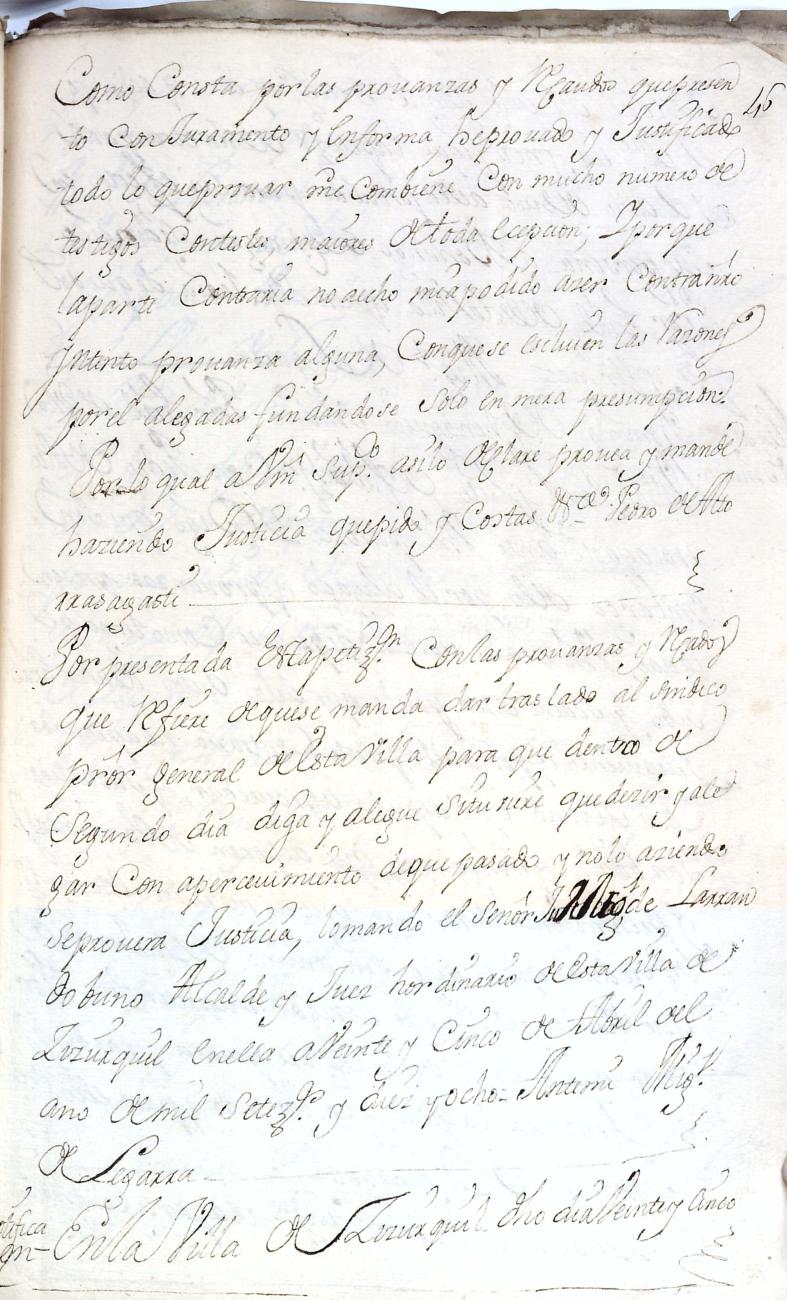 46
Como Consta por las prouanzas y Recaudos que presen
to con Juramento y en forma, he prouado y Justificado
todo lo que prouar me Combiene con mucho numero de
testigos Contestes, maiores de toda ecepcion; Y porque
la parte Contraria no a echo ni a podido azer Contra mi
Yntento prouanza alguna, Con que se escluien las Razones
por el alegadas fundandose solo en mera presumpcion.
Por lo qual a Vm Supco. asi lo declare prouea y mande
haziendo Justicia que pido y Costas &ca. Pedro de Ato
rrasagasti
Por presentada Esta petizon. Con las prouanzas y Recados
que Refiere de que se manda dar traslado al sindico
pror general de Esta Villa para que dentro de
Segundo dia diga y alegue si tuviere que dezir y ale
gar Con apercevimiento de que pasado y no lo aziendo
se prouera Justicia, lo mando el señor de Larran
do buno Alcalde y Juez hordinario de esta Villa de
Zizurquil en ella a Veinte y Cinco de Abril del
ano de mil Setezos. y diez y ocho = Antemi Migl.
de Legarra
En la Villa de Zizurquil dho dia Veinte y cinco